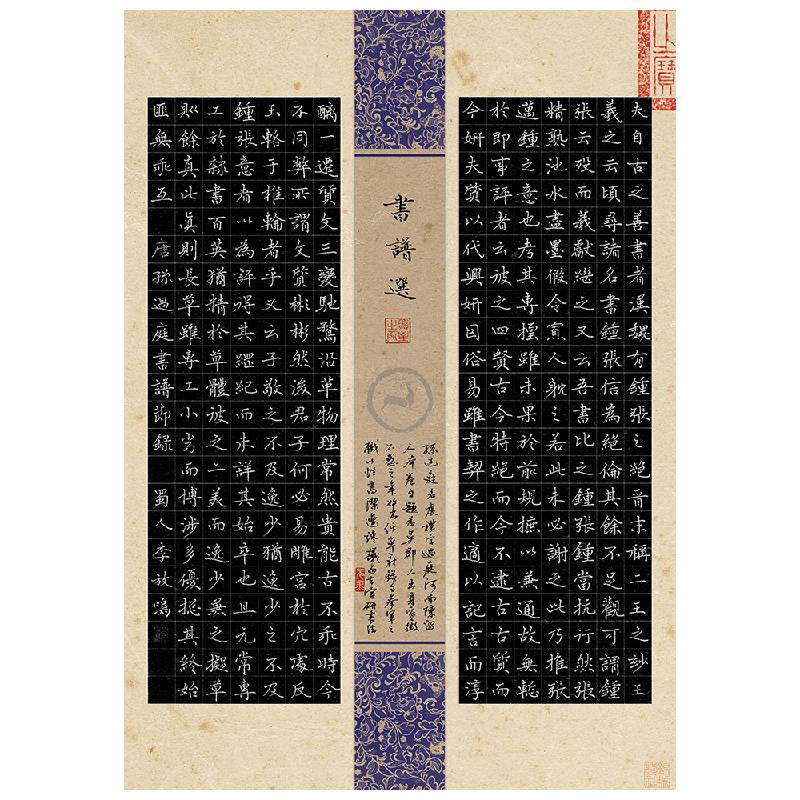 夫自古之善書者漢魏有鍾張之絕晉末稱二王之妙王
羲之云頃尋諸名書鍾張信為絕倫其餘不足觀可謂鍾
張云歿而羲獻繼之又云吾書比之鍾張鍾當抗行然張
精熟池水盡墨假令寡人耽之若此未必謝之此乃推張
邁鍾之意也考其專擅雖未果於前規摭以兼通故無慙
於即事評者云彼之四賢古今特絕而今不逮古古質而
今妍夫質以代興妍因俗易雖書契之作適以記言而淳
書譜選
醨一遷質文三變馳騖沿革物理常然貴能古不乖時今
不同弊所謂文質彬彬然後君子何必易雕宮於穴處反
玉輅于椎輪者乎又云子敬之不及逸少猶逸少之不及
鍾張意者以為評得其綱紀而未詳其始卒也且元常專
工於隸書百英猶精於草體彼之二美而逸少兼之擬草
則餘真比真則長草雖專工小劣而博涉多優揔其終始
匪無乖互 唐孫過庭書譜節錄 蜀人李放鳴
之寶